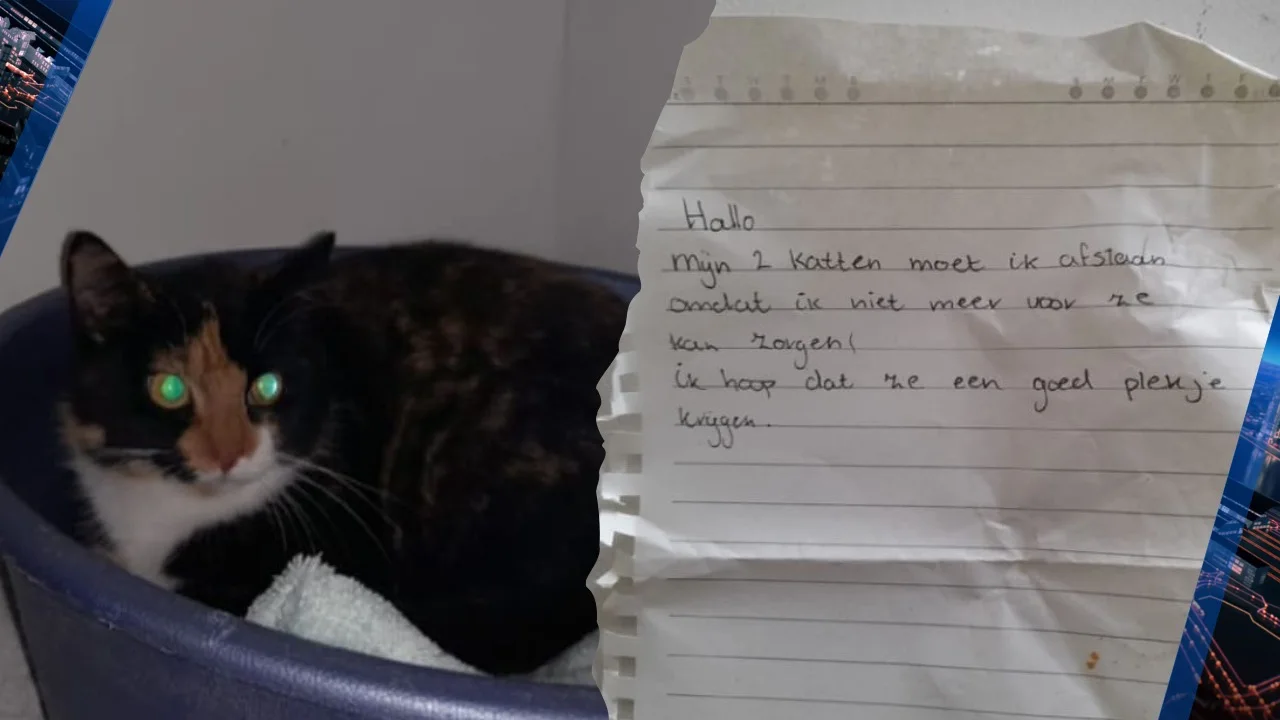 S T W T M S S M T W T F
Hallo
Mijn 2 katten moet ik afstaan
omdat ik niet meer voor ze
kan zorgen!
ik hoop dat ze een goed plekje
krijgen.